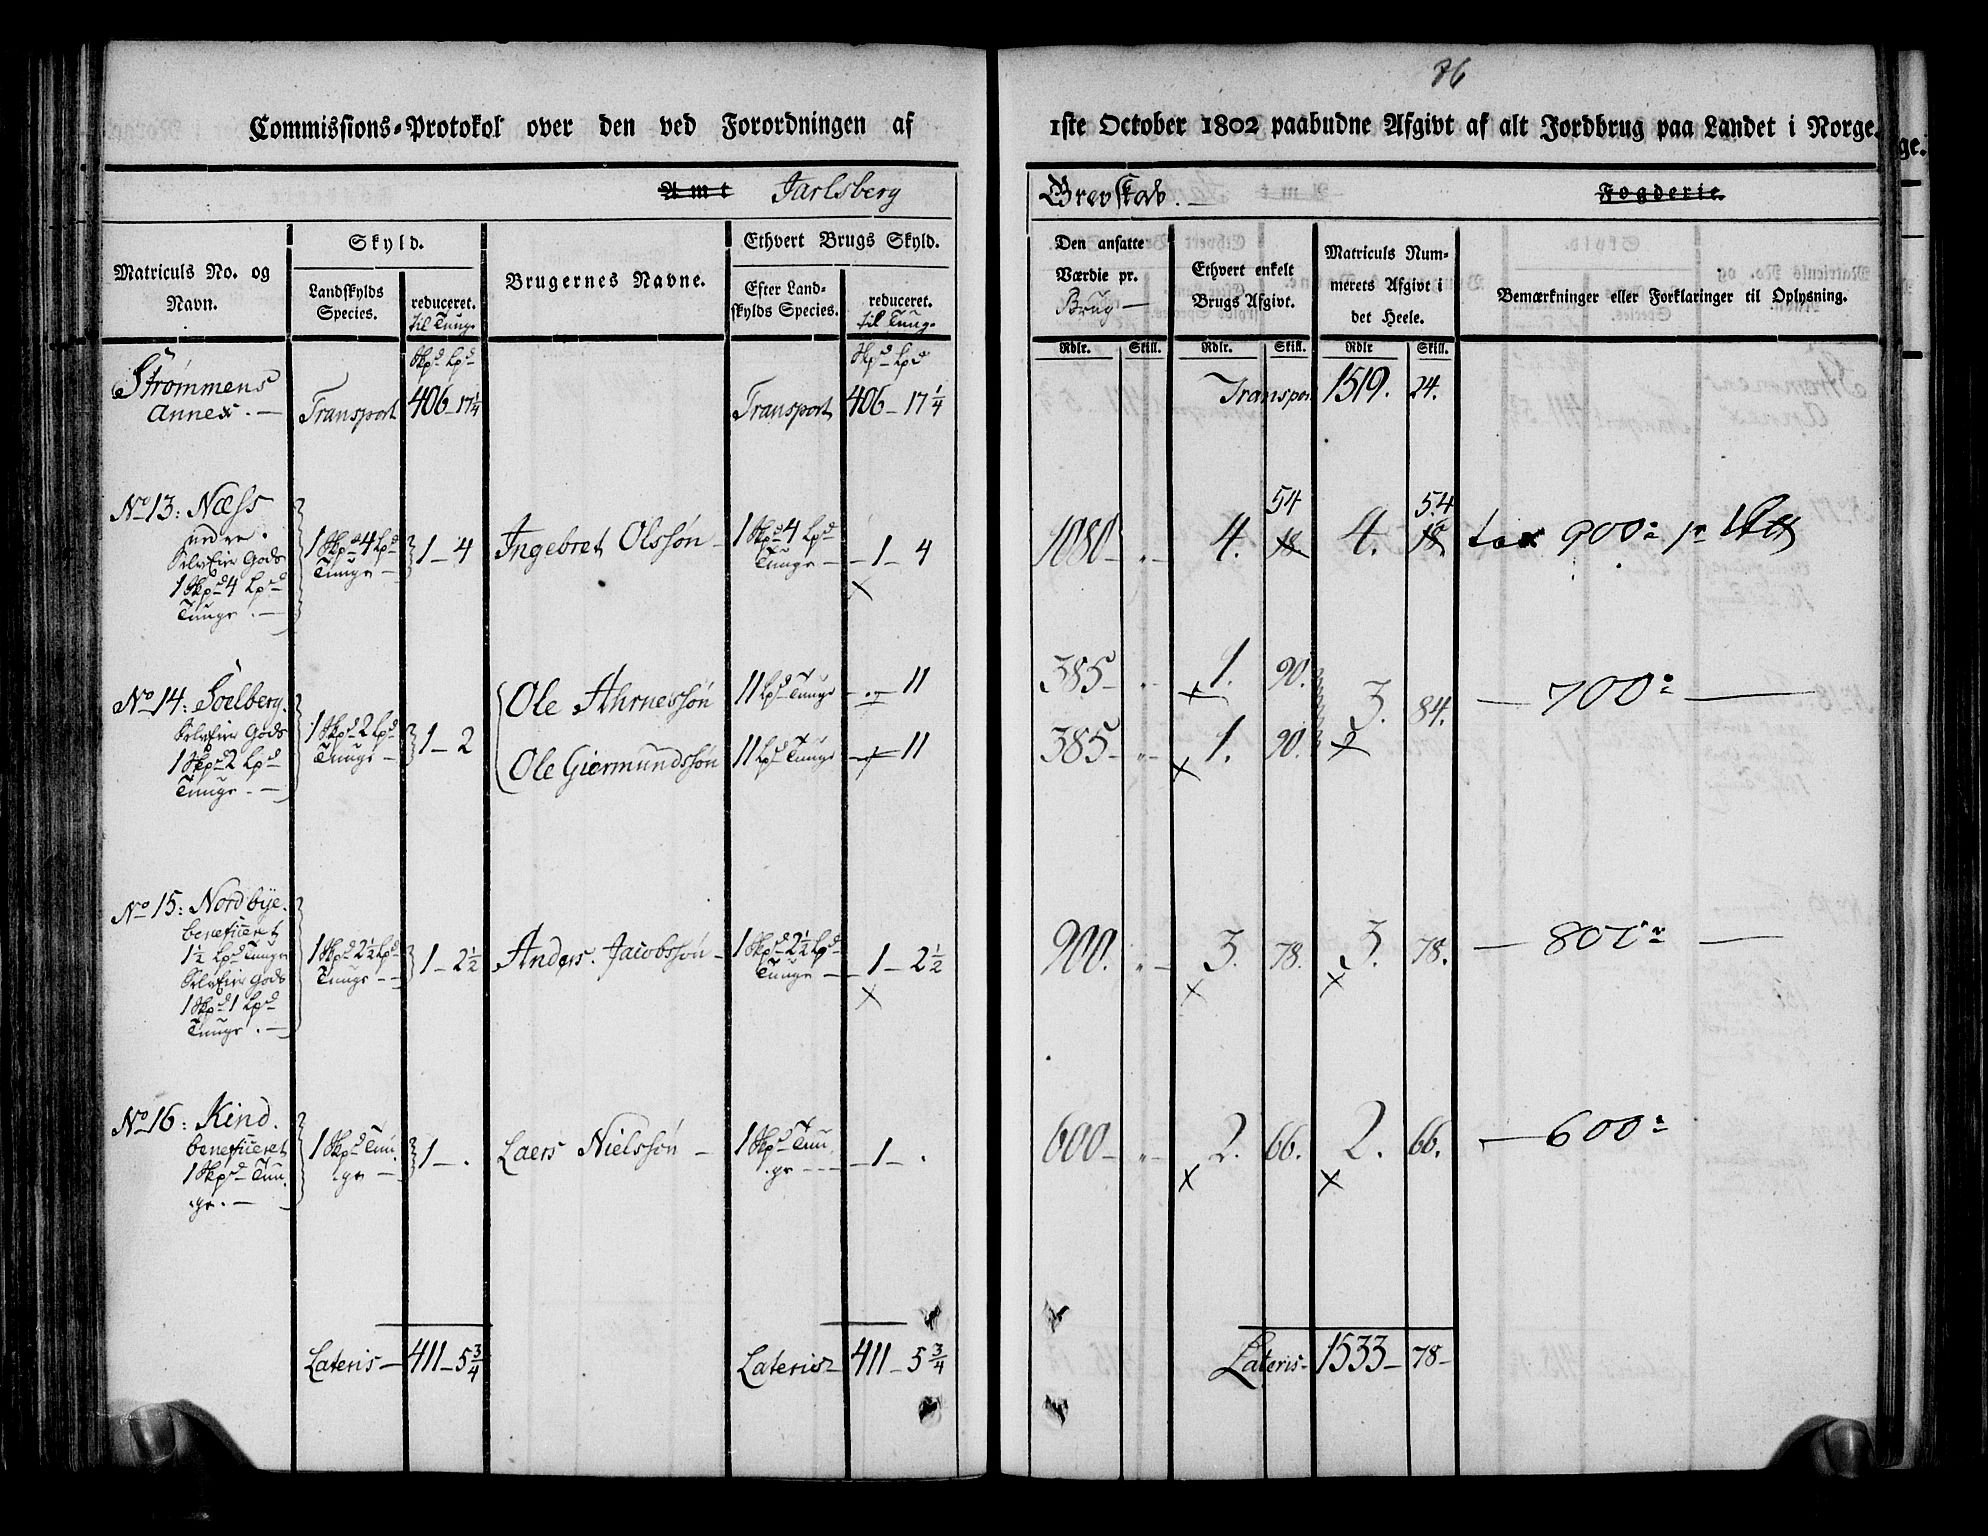 76
Commissions-Protokol over den ved Forordningen af 1ste October 1802 paabudne Afgivt af alt Jordbrug paa Landet i Norge.
Amt Jarlsberg Grevskab. Fogderie.
Matriculs No. og Navn.
Skyld.
Landskylds Species.
reduceret. til Tunge
Brugernes Navne.
Ethvert Brugs Skyld.
Efter Landskylds Species.
reduceret. til Tung.
Den ansatte Værdie pr. Brug
Ethvert enkelt Brugs Afgivt.
Matriculs Nummerets Afgivt i det Heele.
Bemærkninger eller Forklaringer til Oplysning.
Skpd Lpd Skpd Lpd Rdlr. Skill. Rdlr. Skill. Rdlr Skill.
Strømmens Annex. Transport 406 - 17 1/4 Transport 406 - 17 1/4 Transpor 1519. 24.
No 13: Næss
nedre.
SelvEier Gods
1 Skpd 4 Lpd
Tunge.
1 Skpd 4 Lpd Tunge 1 - 4 Ingebret Olssøn 1 Skpd 4 Lpd Tunge 1 - 4 1080 4. 54 18 4. 54 18 tax 900
No 14: Soelberg.
SelvEier Gods
1 Skpd 2 Lpd
Tunge.
1 Skpd 2 Lpd Tunge 1 - 2
Ole Ahrnessøn 11 Lpd Tunge 11 385 1. 90. 3. 84. 700
Ole Giermundssøn 11 Lpd Tunge 11 385 1. 90.
No 15: Nordbye.
beneficeret
1 1/2 Lpd Tunge
SelvEier Gods
1 Skpd 1 Lpd
Tunge.
1 Skpd 2 1/2 Lpd Tunge 1 - 2 1/2 Anders Jacobssøn 1 Skpd 2 1/2 Lpd Tunge 1 - 2 1/2 900. 3. 78. 3. 78. 800
No 16: Kind.
beneficeret
1 Skpd Tunge.
1 Skpd Tunge 1 - . Laers Nielssøn 1 Skpd Tunge 1 - . 600 2. 66. 2. 66. 600
Lateris 411 - 5 3/4 Lateris 411 - 5 3/4 Lateris 1533 - 78